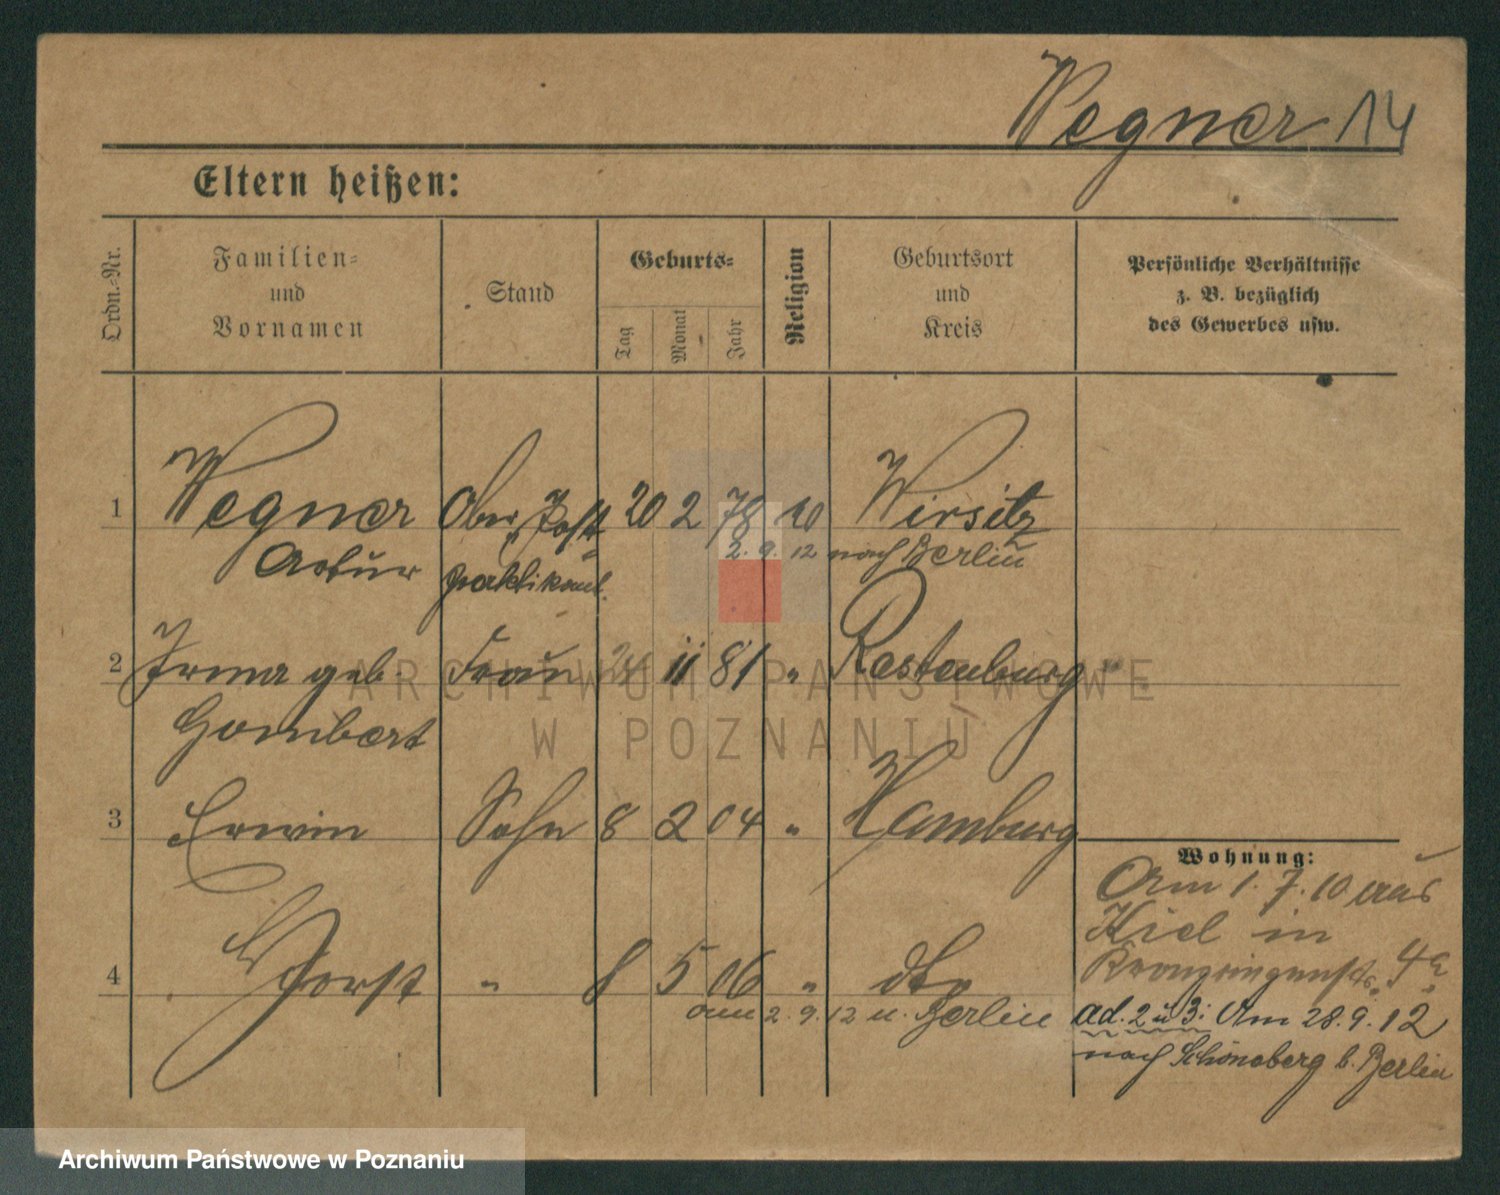 Wegner 14
Eltern heißen:
Ordn.-Nr.
Familien-
und
Vornamen
Stand
Geburts-
Tag
Monat
Jahr
Religion
Geburtsort
und
Kreis
Persönliche Verhältnisse
z. B. bezüglich
des Gewerbes usw.
1 Wegner Ober Post- 20 2 78 Wirsitz
Artur praktikant. 2. 9. 12 nach Berlin
2 Irma geb. Frau 11 81 " Rastenburg
Gombert
3 Erwin Sohn 8 2 04 " Hamburg
4 Horst " 8 5 06 " dto
am 2. 9. 12 n. Berlin
Wohnung:
Am 1. 7. 10 aus
Kiel in
Kronprinzenstr. 4a
ad. 2 u 3: Am 28. 9. 12
nach Schöneberg b. Berlin
ARCHIWUM PAŃSTWOWE
W POZNANIU
Archiwum Państwowe w Poznaniu